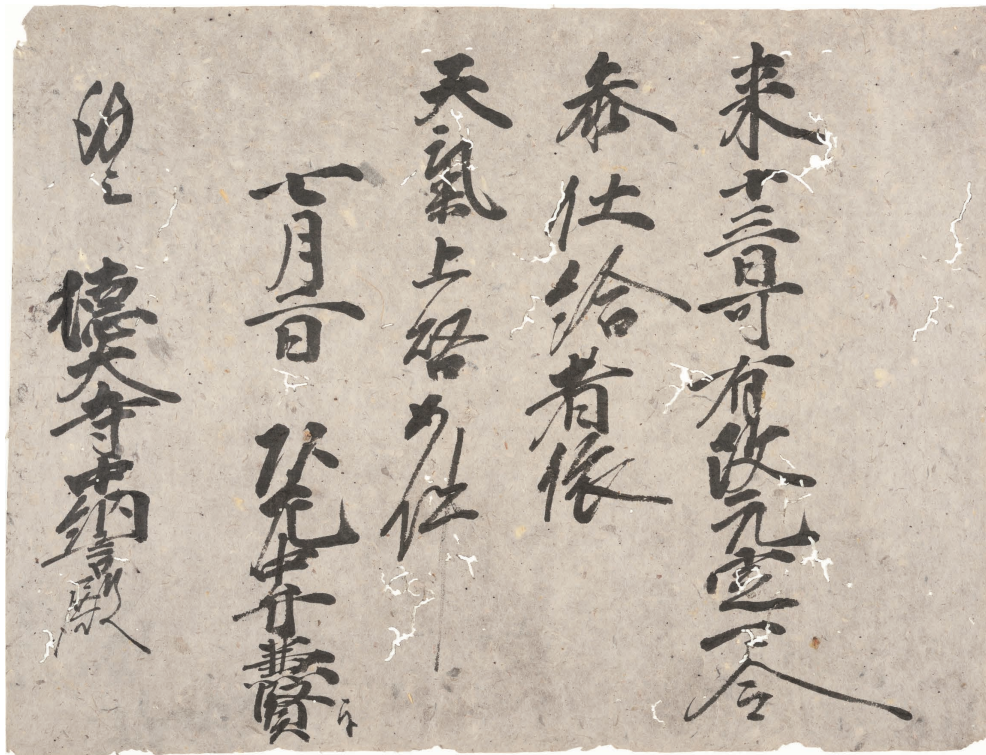 来十三日可有改元定可令
参仕給者依
天氣上啓如件
七月二日 左中弁
謹上 徳大寺中納言殿